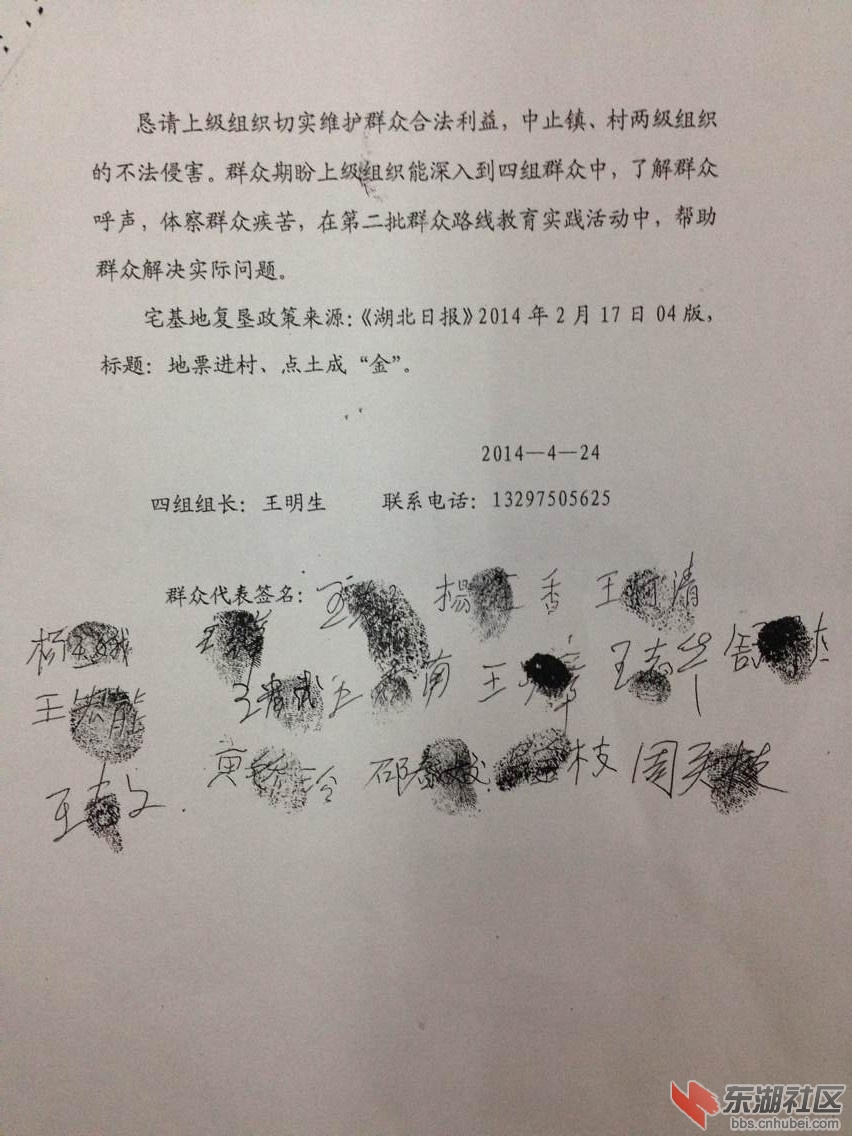 恳请上级组织切实维护群众合法利益，中止镇、村两级组织
的不法侵害。群众期盼上级组织能深入到四组群众中，了解群众
呼声，体察群众疾苦，在第二批群众路线教育实践活动中，帮助
群众解决实际问题。
宅基地复垦政策来源：《湖北日报》2014 年 2 月 17 日 04 版，
标题：地票进村、点土成“金”。
2014—4—24
四组组长：王明生 联系电话：13297505625
群众代表签名：王 楊 香 王 清
杨 娥 王 王 南 王 章 王 华 舒
王宏能
王 文 黄 玲 邵春 枝 周 枝
东湖社区
bbs.cnhubei.com